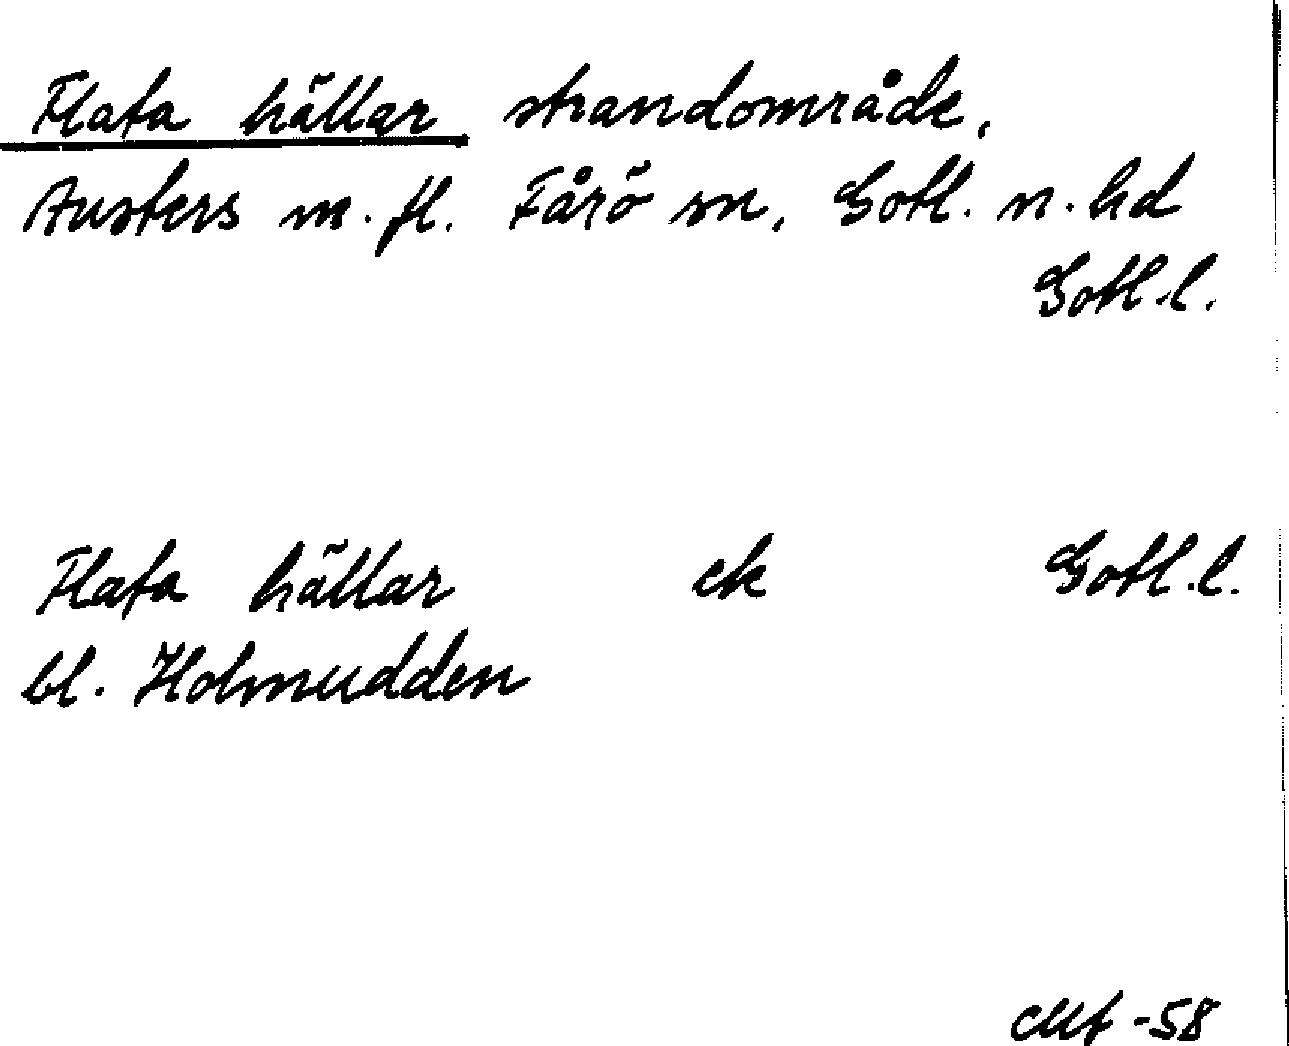 Flata hällar strandområde,
Austers m.fl. Fårö sn, Gotl. n. hd
Gotl.l.
Flata hällar ek Gotl.l.
bl. Holmudden
-58